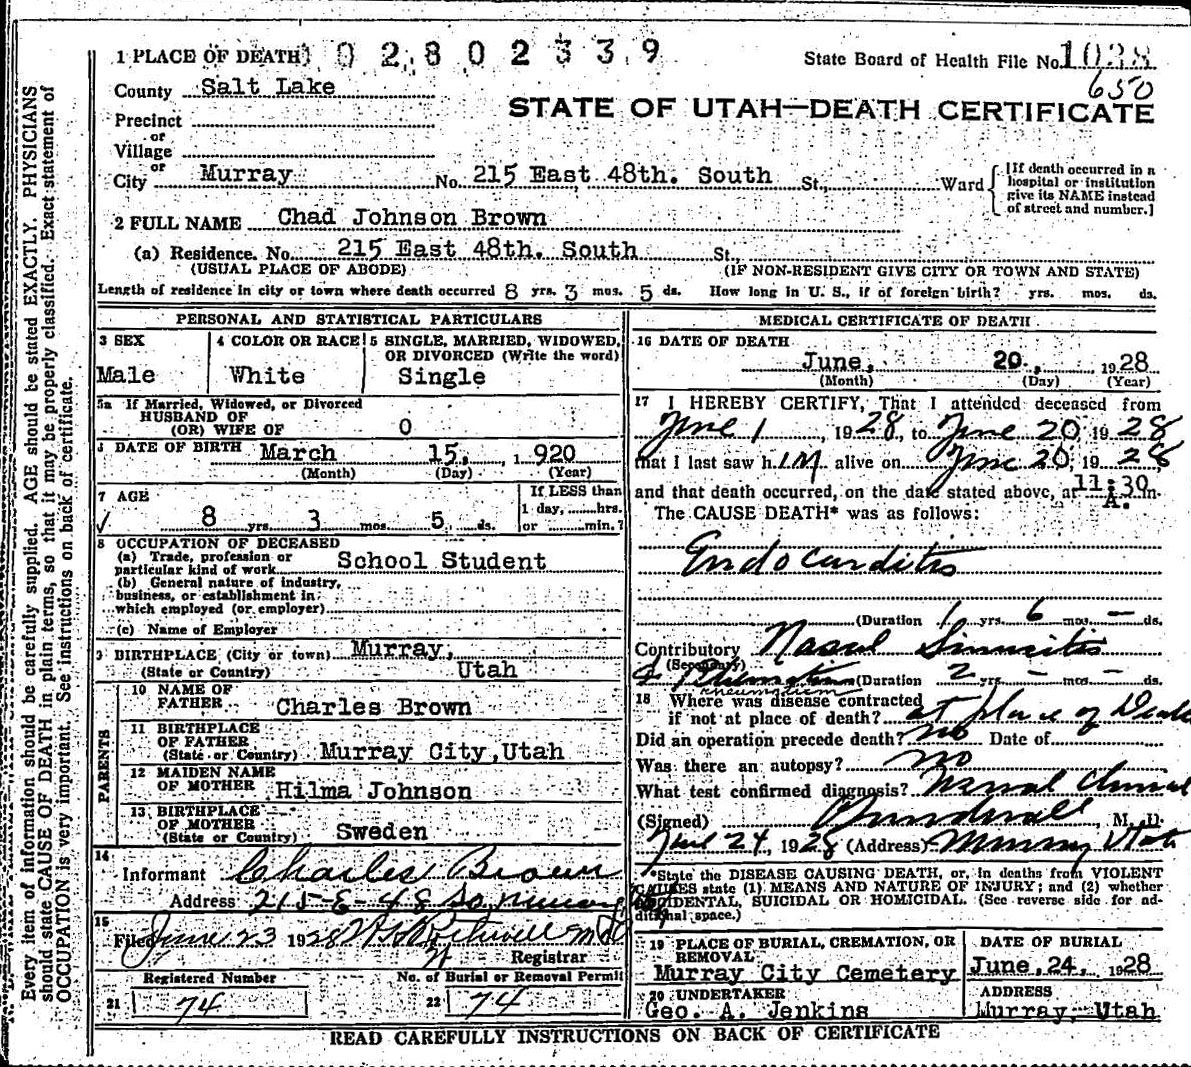 1 PLACE OF DEATH 1 0 2 8 0 2 3 3 9
State Board of Health File No. 1038
650
County Salt Lake
STATE OF UTAH—DEATH CERTIFICATE
Precinct
or
Village
or
City Murray No. 215 East 48th. South St., Ward
[If death occurred in a
hospital or institution
give its NAME instead
of street and number.]
2 FULL NAME Chad Johnson Brown
(a) Residence. No. 215 East 48th. South St.,
(USUAL PLACE OF ABODE) (IF NON-RESIDENT GIVE CITY OR TOWN AND STATE)
Length of residence in city or town where death occurred 8 yrs. 3 mos. 5 ds. How long in U. S., if of foreign birth? yrs. mos. ds.
PERSONAL AND STATISTICAL PARTICULARS
3 SEX
Male
4 COLOR OR RACE
White
5 SINGLE, MARRIED, WIDOWED,
OR DIVORCED (Write the word)
Single
5a If Married, Widowed, or Divorced
HUSBAND OF
(OR) WIFE OF 0
DATE OF BIRTH March 15, 1920
(Month) (Day) (Year)
7 AGE
8 yrs. 3 mos. 5 ds.
If LESS than
1 day, hrs.
or min.?
8 OCCUPATION OF DECEASED
(a) Trade, profession or
particular kind of work School Student
(b) General nature of industry,
business, or establishment in
which employed (or employer)
(c) Name of Employer
9 BIRTHPLACE (City or town) Murray,
(State or Country) Utah
PARENTS
10 NAME OF
FATHER Charles Brown
11 BIRTHPLACE
OF FATHER
(State or Country) Murray City, Utah
12 MAIDEN NAME
OF MOTHER Hilma Johnson
13 BIRTHPLACE
OF MOTHER
(State or Country) Sweden
14
Informant Charles Brown
Address 215-E-48 So. Murray
15
Filed June 23 1928
Registrar
Registered Number
21 74
No. of Burial or Removal Permit
22 74
MEDICAL CERTIFICATE OF DEATH
16 DATE OF DEATH
June, 20, 1928
(Month) (Day) (Year)
17 I HEREBY CERTIFY, That I attended deceased from
June 1, 1928, to June 20, 1928
that I last saw h im alive on June 20, 1928
and that death occurred, on the date stated above, at 11:30 m.
A.
The CAUSE DEATH* was as follows:
Endocarditis
(Duration 1 yrs. 6 mos. — ds.
Contributory Nasal Sinusitis
(Secondary)
& Rheumatism (Duration 2 yrs. — mos. — ds.
rheumatism
18 Where was disease contracted
if not at place of death? at place of Death
Did an operation precede death? no Date of
Was there an autopsy? no
What test confirmed diagnosis?
(Signed) M. D.
June 24, 1928 (Address) Murray Utah
*State the DISEASE CAUSING DEATH, or, in deaths from VIOLENT
CAUSES state (1) MEANS AND NATURE OF INJURY; and (2) whether
ACCIDENTAL, SUICIDAL OR HOMICIDAL. (See reverse side for ad-
ditional space.)
19 PLACE OF BURIAL, CREMATION, OR
REMOVAL
Murray City Cemetery
DATE OF BURIAL
June, 24, 1928
20 UNDERTAKER
Geo. A. Jenkins
ADDRESS
Murray, Utah
READ CAREFULLY INSTRUCTIONS ON BACK OF CERTIFICATE
Every item of information should be carefully supplied. AGE should be stated EXACTLY. PHYSICIANS
should state CAUSE OF DEATH in plain terms, so that it may be properly classified. Exact statement of
OCCUPATION is very important. See instructions on back of certificate.